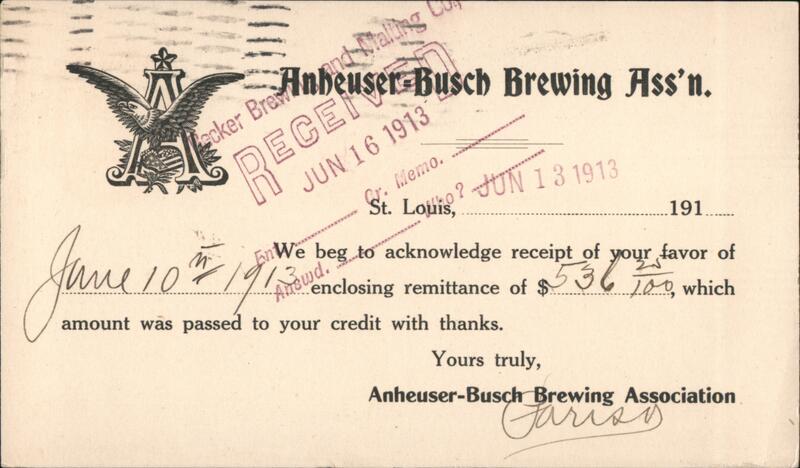 Becker Brewing and Malting Co.
RECEIVED
JUN 16 1913
Cr. Memo.
Who?
Ent.
Answd.
A
Anheuser-Busch Brewing Ass'n.
JUN 13 1913
St. Louis, 191
We beg to acknowledge receipt of your favor of
June 10th 1913 enclosing remittance of $ 536 25/100, which
amount was passed to your credit with thanks.
Yours truly,
Anheuser-Busch Brewing Association